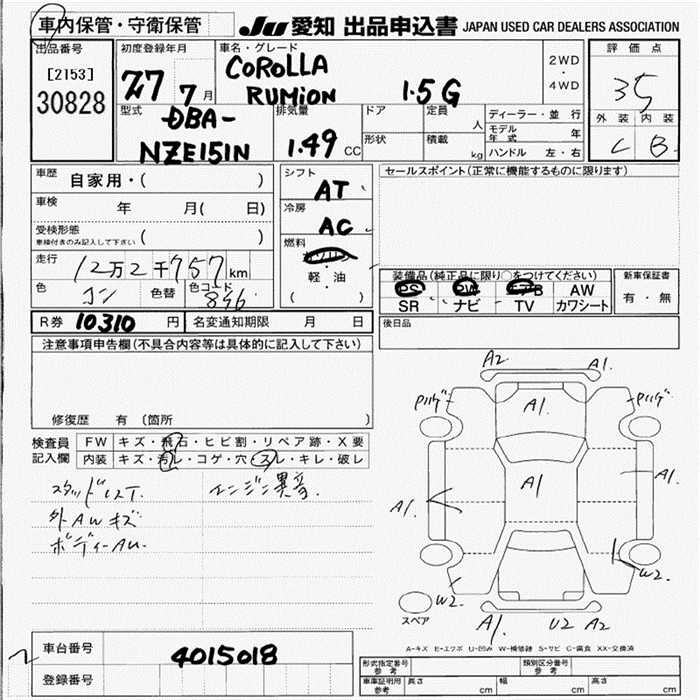 車内保管・守衛保管 JU 愛知 出品申込書 JAPAN USED CAR DEALERS ASSOCIATION
出品番号
[2153]
30828
初度登録年月
27 7月
車名・グレード
COROLLA
RUMION 1.5G
2WD
・
4WD
評価点
35
外装 内装
C B
型式
DBA-
NZE151N
排気量
1.49 CC
ドア
形状
定員 人
積載 kg
ディーラー・並行
モデル年式 年
ハンドル 左・右
車歴 自家用・( )
車検 年 月( 日)
受検形態
車検付きのみ記入して下さい ( )
走行 12万2千757km
色 コン 色替 色コード 8X6
シフト
AT
冷房
AC
燃料
ガソリン
・
軽・油
( )
セールスポイント(正常に機能するものに限ります)
装備品(純正品に限り○をつけてください)
PS PW エアB AW
SR ナビ TV カワシート
新車保証書
有・無
後日品
R券 10310 円 名変通知期限 月 日
注意事項申告欄(不具合内容等は具体的に記入して下さい)
修復歴 有 〔箇所 〕
検査員 FW キズ・飛石・ヒビ割・リペア跡・X要
記入欄 内装 キズ・汚レ・コゲ・穴・スレ・キレ・破レ
スタッドレスT. エンジン異音.
外AWキズ
ボディーAU.
A2 A1.
Pハゲ A1. Pハゲ
A1. A1 A1.
W2. W2.
スペア A1. U2 A2
A-キズ E-エクボ U-凹み W-補修跡 S-サビ C-腐食 XX-交換済
車台番号 4015018
登録番号
形式指定番号 参考 類別区分番号 参考
車庫証明用 参考 長さ cm 幅 cm 高さ cm